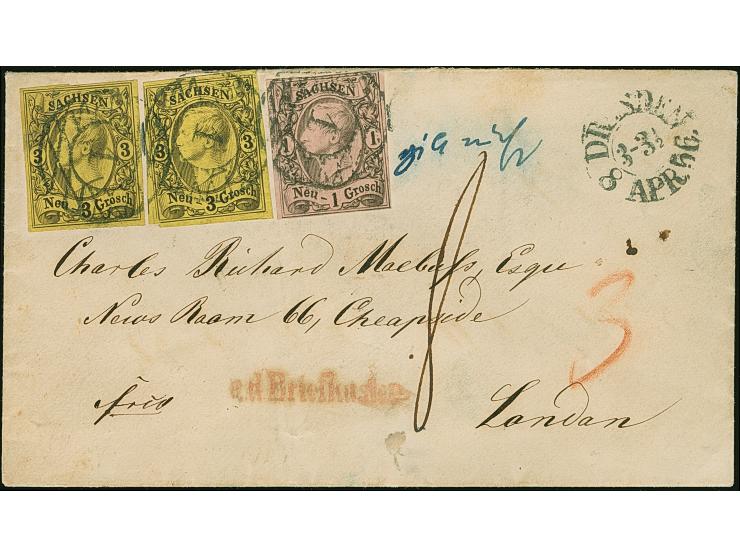 SACHSEN
3 3
Neu - 3 Grosch
SACHSEN
3 3
Neu - 3 Grosch
SACHSEN
1 1
Neu - 1 Grosch
DRESDEN
8 APR 56.
Charles Richard Esqu
News Room 66, Cheapside
3
a.d Briefkasten
London